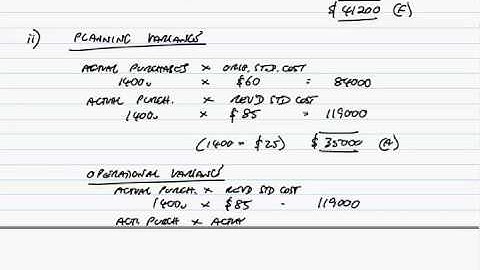 $41200 (F)
ii) PLANNING VARIANCES
ACTUAL PURCHASES × ORIG. STD. COST
1400 × $60 = 84000
ACTUAL PURCH. × REVD STD COST
1400 × $85 = 119000
(1400 × $25) $35000 (A)
OPERATIONAL VARIANCES
ACTUAL PURCH. × REVD STD COST
1400 × $85 - 119000
ACT. PURCH × ACTUAL